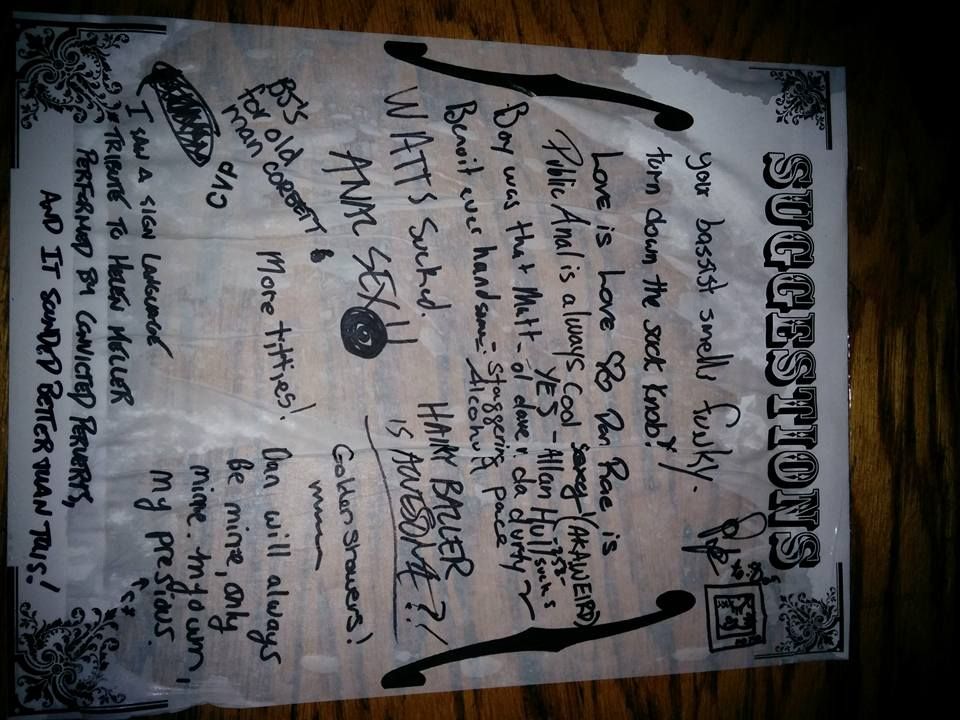 SUGGESTIONS
your bassist smells funky.
turn down the suck knob!
Love is Love Dan Rae is
Public Anal is always Cool (AKA WEIRD)
YES - Allan Hull sucks
Boy was that Matt - ol dave in da durty
Benoit ever handsome - staggering pace
Alcohol
WATTS Sucked.
HAIRY BALLER
IS AWESOME?!
ANAL SEX!!
Golden showers!
BJ'S
for old
man CORBETT &
More titties!
Dan will always
be mine, only
mine. My own,
my precious.
I SAW A SIGN LANGUAGE
TRIBUTE TO HELEN KELLER
PERFORMED BY CONVICTED PERVERTS,
AND IT SOUNDED BETTER THAN THIS!